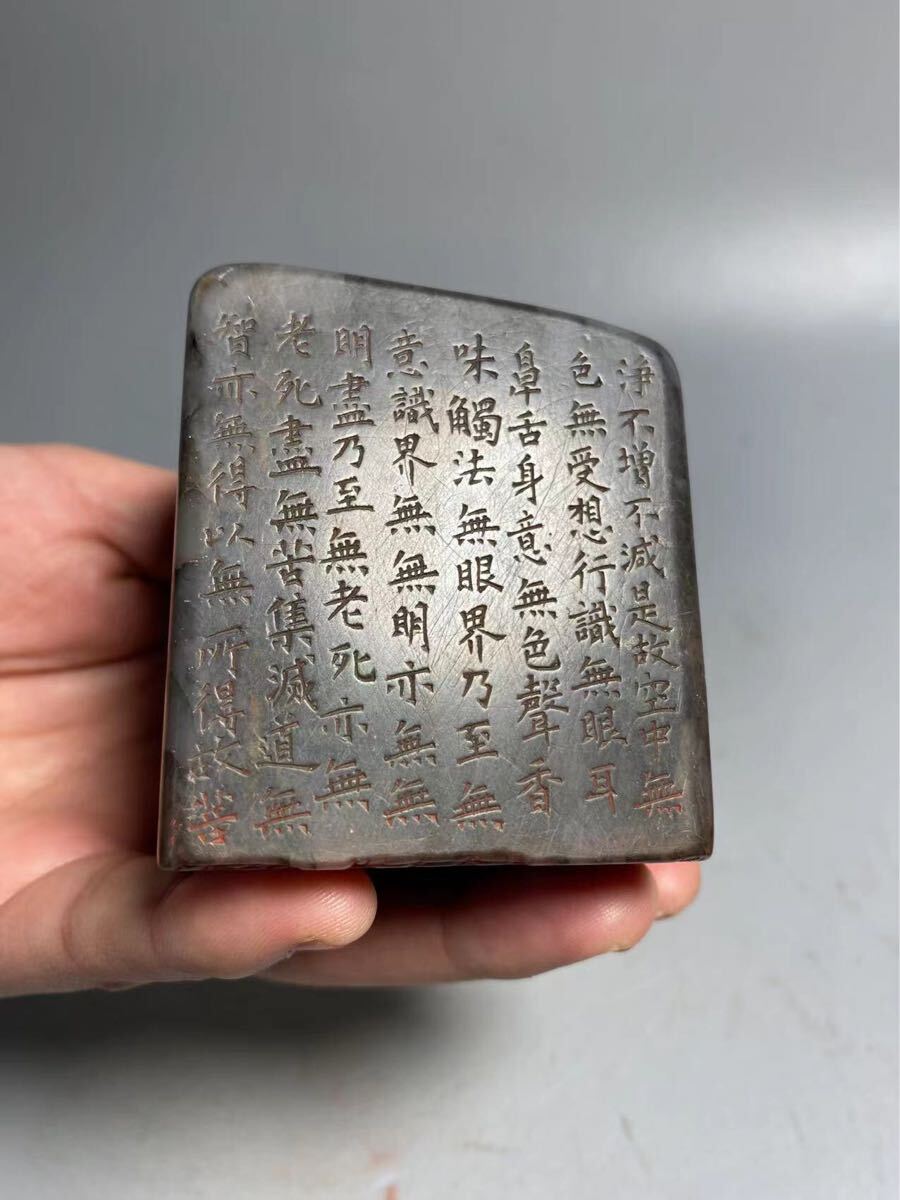 淨不增不減是故空中無
色無受想行識無眼耳
鼻舌身意無色聲香
味觸法無眼界乃至無
意識界無無明亦無無
明盡乃至無老死亦無
老死盡無苦集滅道無
智亦無得以無所得故菩